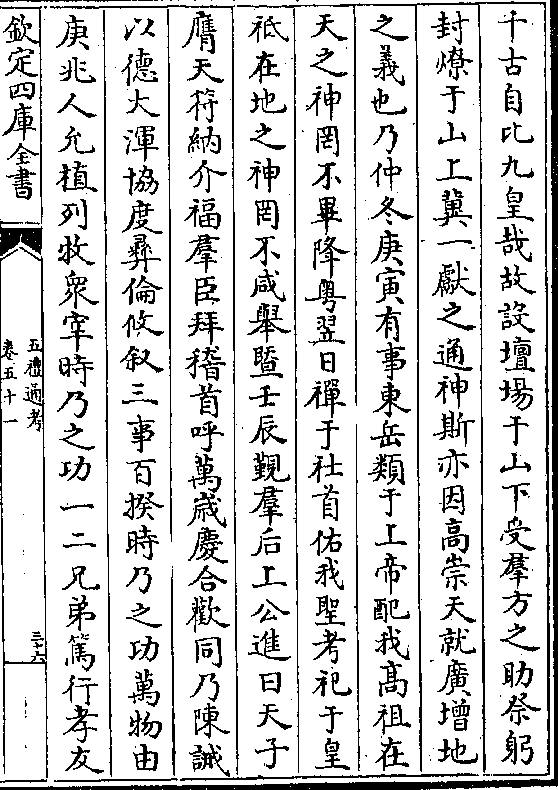 千古自比九皇哉故設壇場于山下受羣方之助祭躬
封燎于山上冀一獻之通神斯亦因高崇天就廣增地
之義也乃仲冬庚寅有事東岳類于上帝配我高祖在
天之神罔不畢降粤翌日禪于社首佑我聖考祀于皇
祗在地之神罔不咸舉暨壬辰覲羣后上公進曰天子
膺天符納介福羣臣拜稽首呼萬歲慶合歡同乃陳誡
以德大渾協度彞倫攸叙三事百揆時乃之功萬物由
庚兆人允植列牧衆宰時乃之功一二兄弟篤行孝友
欽定四庫全書
五禮通考
卷五十一
三十六